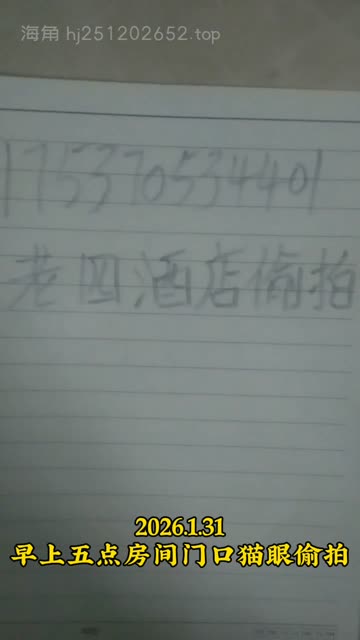 海角 hj251202652.top
175370534401
老四酒店偷拍
2026.1.31
早上五点房间门口猫眼偷拍